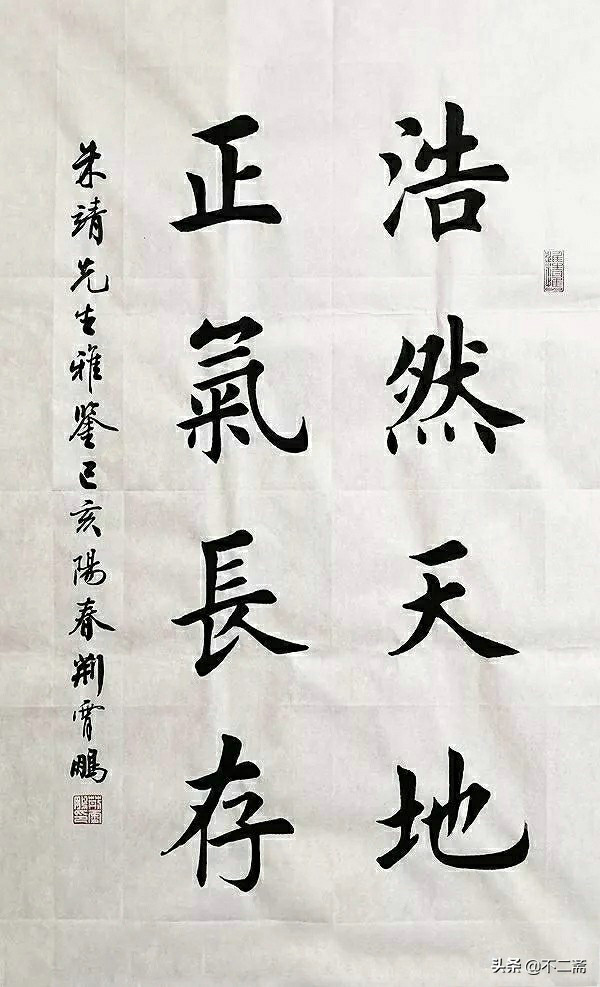 浩然天地
正氣長存
朱靖先生雅鑒己亥陽春荆霄鵬
头条 @不二斋